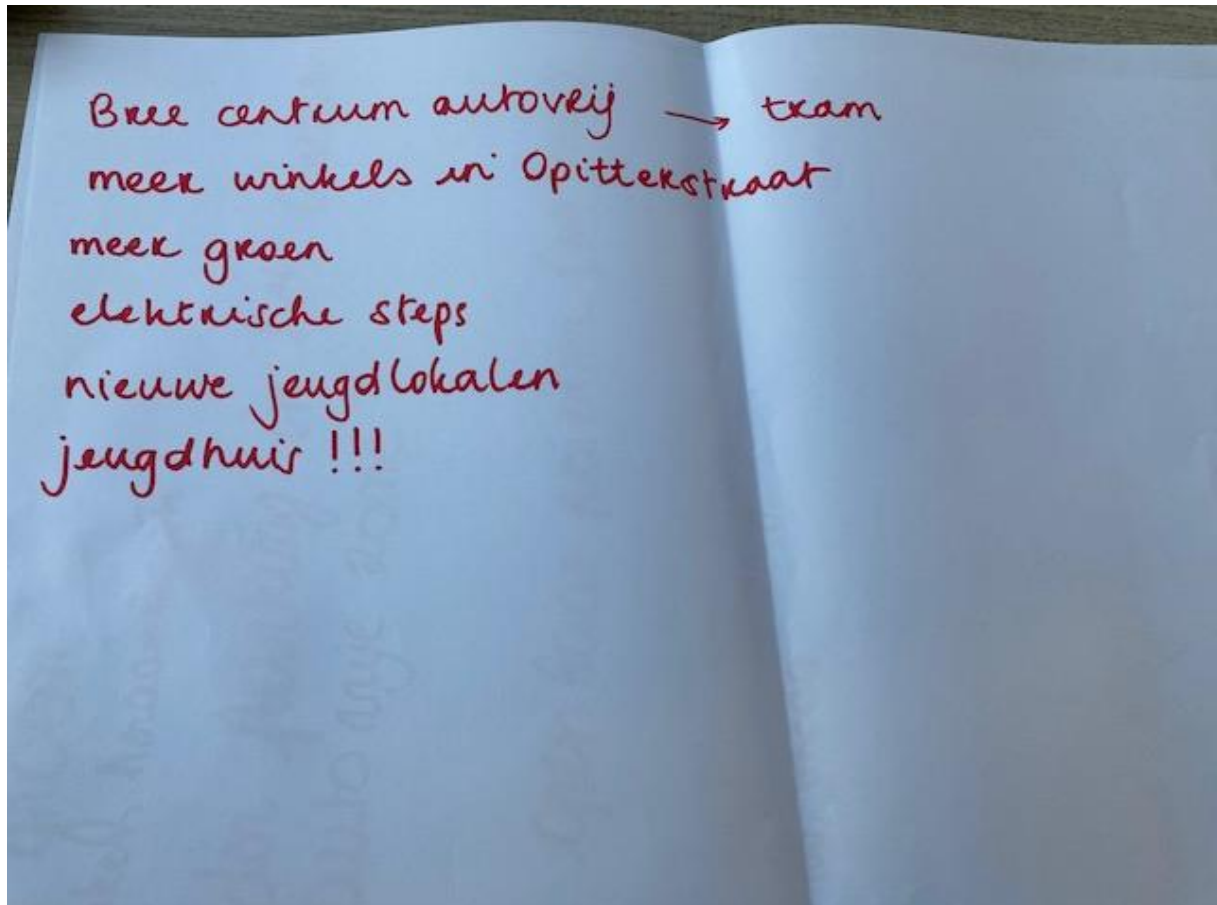 Bree centrum autovrij → tram
meer winkels in Opitterstraat
meer groen
elektrische steps
nieuwe jeugdlokalen
jeugdhuis !!!